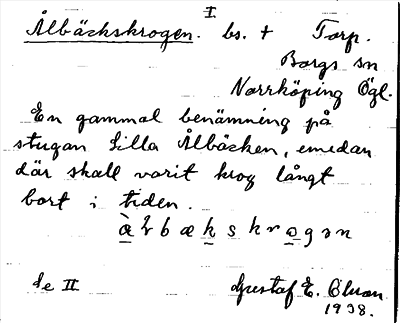 I
Ålbäckskrogen. bs. t Torp.
Borgs sn
Norrköping Ögl.
En gammal benämning på
stugan Lilla Ålbäcken, emedan
där skall varit krog långt
bort i tiden.
se II
Gustaf E.
1938.